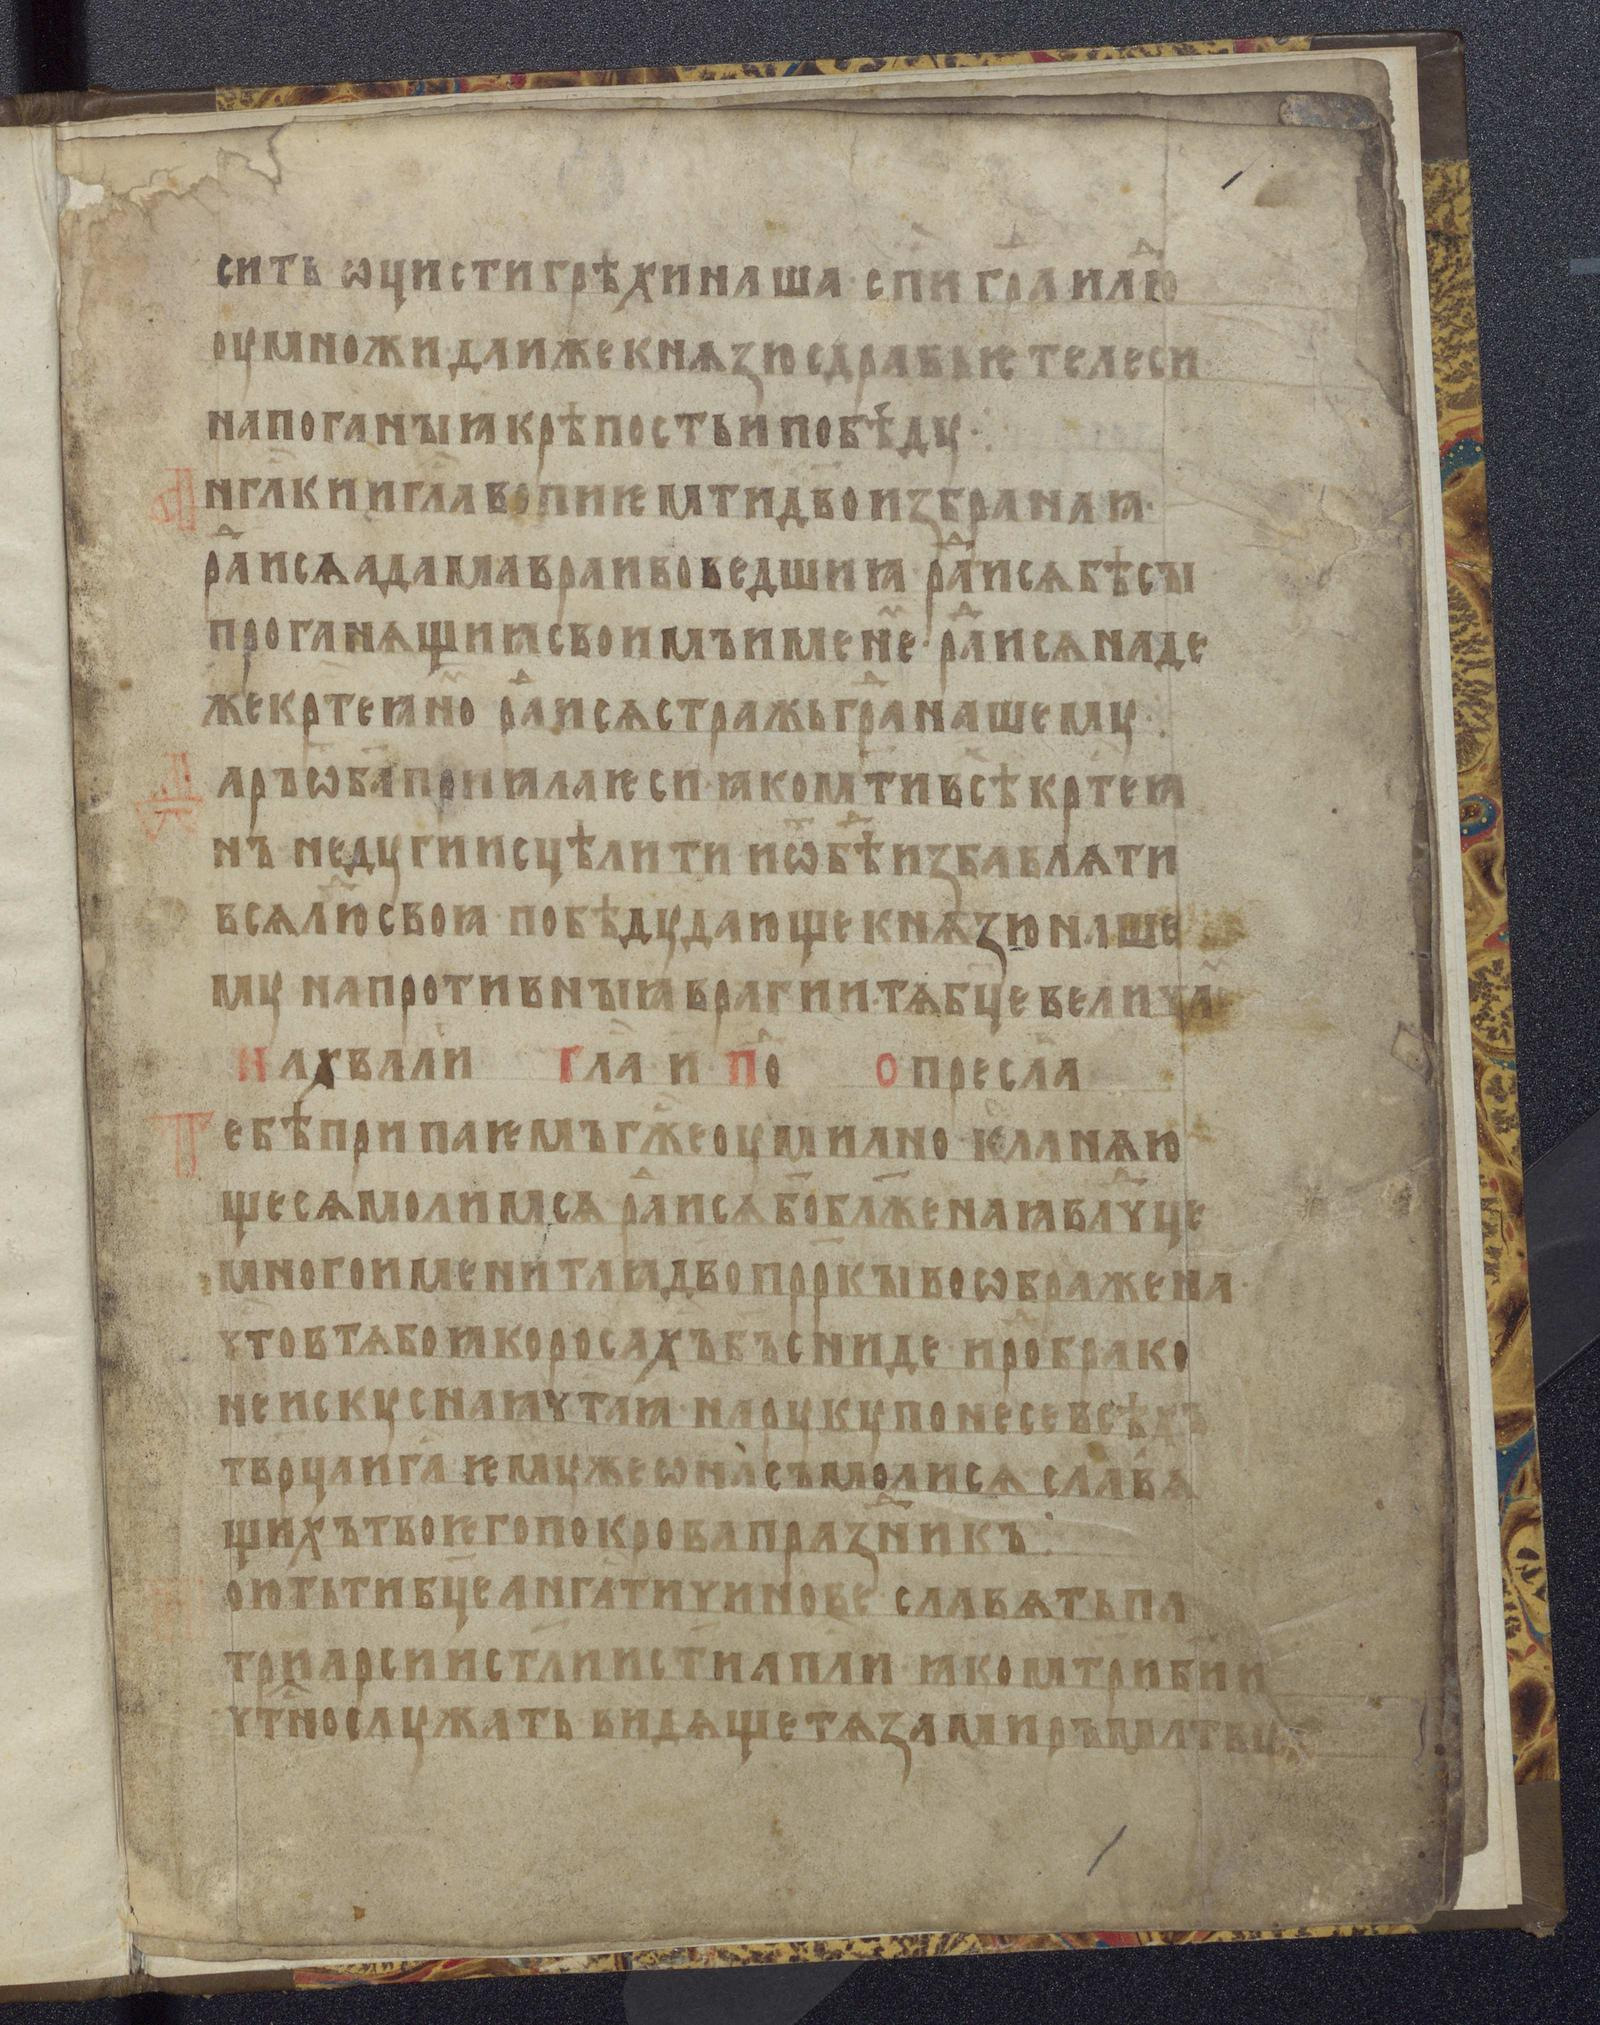 сить ѡцисти грѣхи наша · сп҃и гра̑ и лю̑
оумножи даи же кнѧзю сдравьѥ телеси
на поганыꙗ крѣпость и побѣду ⁘
Анг҃лки и гл҃а вопиѥм ти дв҃о избранаꙗ ·
ра̑исѧ адама в раи воведшиꙗ · ра̑исѧ бѣсы
проганѧщиꙗ своимъ имене̑ · ра̑исѧ наде
же кр҃теꙗно̑ ра̑исѧ стражь гра̑ нашему ⁘
Даръ ѿ ба҃ приꙗла ѥси · ꙗко м҃ти всѣ кр҃теꙗ
нъ недуги исцѣлити и ѿ бѣ̑ избавлѧти
всѧ лю̑ своꙗ · побѣду дающе кнѧзю наше
му на противныꙗ враги и тѧ бц҃е велича̑
на хвали гла и по̑ о преслаꙗ
Тебѣ припаѥмъ гж҃е оумилно кланѧю
щесѧ молимсѧ ра̑исѧ бо̑ бл҃женаꙗ вл҃чце
многоименитаꙗ дв҃о прр҃кы воѡбражена ·
что в тѧ бо ꙗко роса хъ бъ сниде · и ро̑ брако
неискуснаꙗ ч҃таꙗ · на руку понесе всѣхъ
творца и га҃ ѥмуже ѡ на̑съ молисѧ славѧ
щихъ твоѥго покрова праз̑никъ ⁘
Поють ти бц҃е анг҃лтии чинове · славѧть па
триарси и ст҃ли и ст҃и ап҃ли · ꙗко мт҃ри би҃и
ч҃тно служать видѧще тѧ за миръ мл҃тву